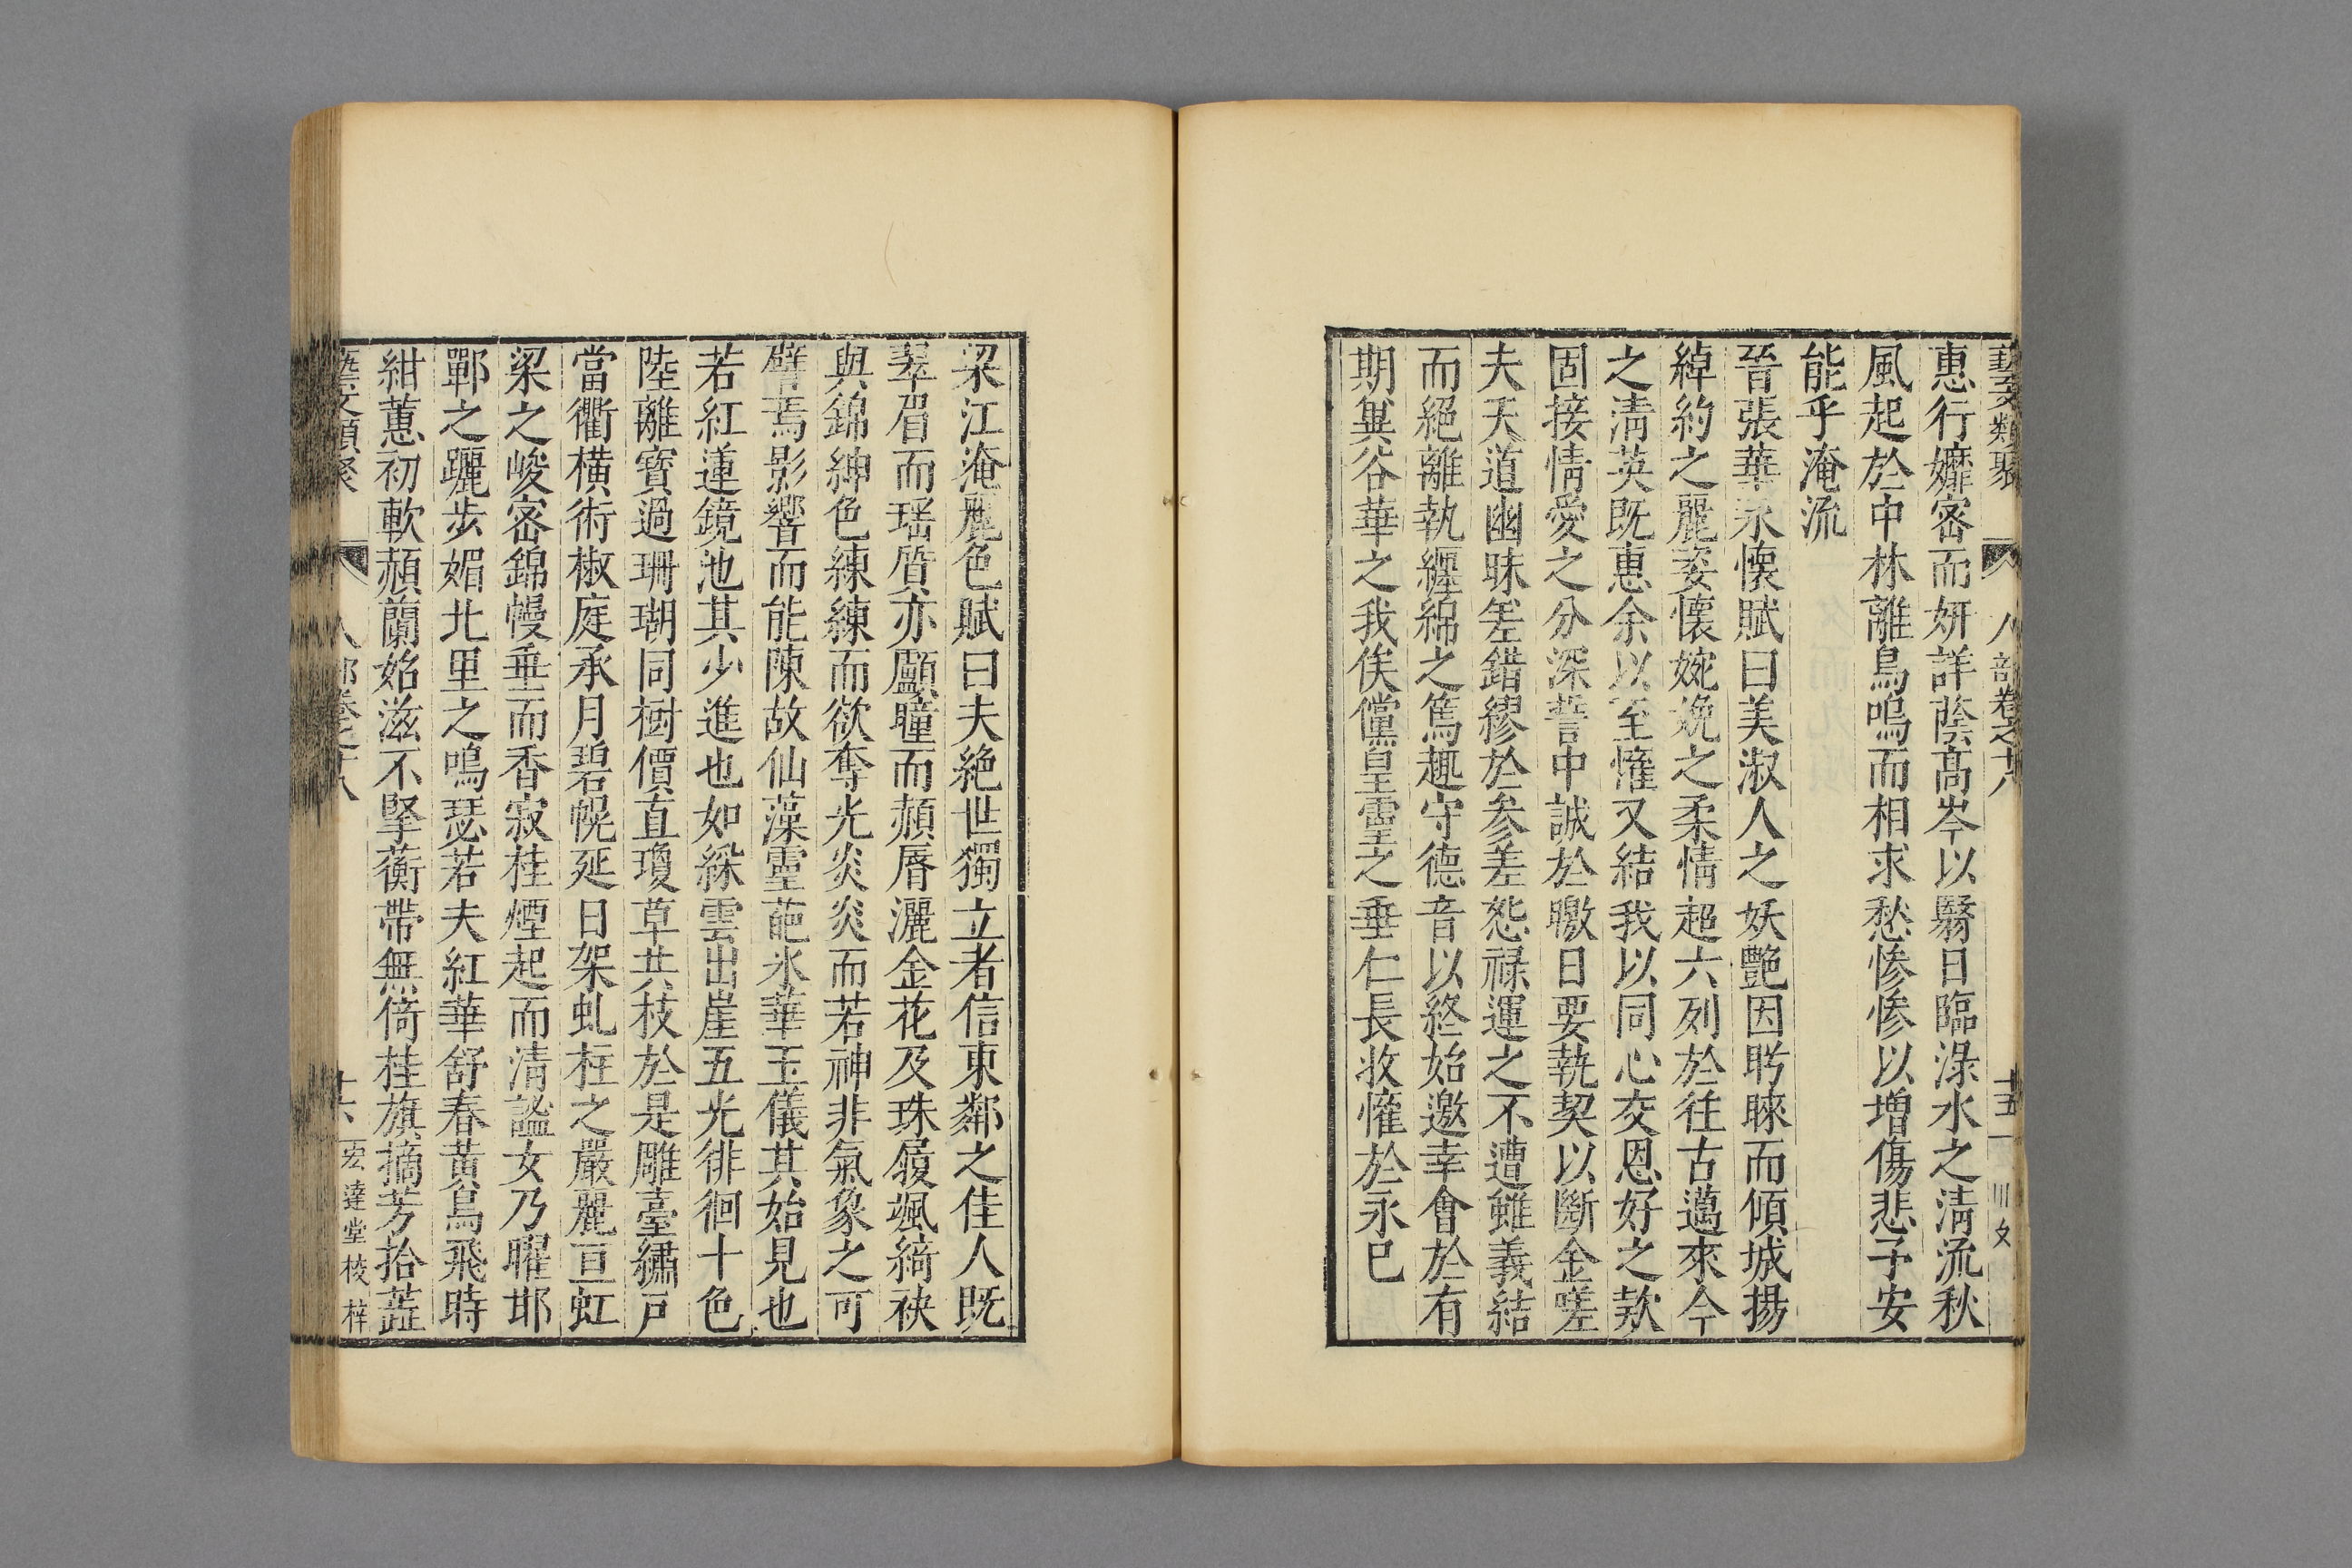 藝文類聚 人部卷之十八 十五
惠行嬺密而妍詳蔭高岑以翳日臨淥水之清流秋
風起於中林離鳥鳴而相求愁慘慘以增傷悲予安
能乎淹流
晉張華永懷賦曰美淑人之妖艷因盻睞而傾城揚
綽約之麗姿懷婉娩之柔情超六列於往古邁來今
之清英既惠余以至懽又結我以同心交恩好之款
固接情愛之分深誓中誠於曒日要執契以斷金嗟
夫天道幽昧差錯繆於参差怨祿運之不遭雖義結
而絕離執纏綿之篤趣守德音以終始邀幸會於有
期兾谷華之我俟儻皇靈之垂仁長收懽於永已
梁江淹麗色賦曰夫絶世獨立者信東鄰之佳人既
翠眉而瑶質亦顱瞳而頳脣灑金花及珠履颯綺袂
與錦紳色練練而欲奪光炎炎而若神非氣象之可
譬焉影響而能陳故仙藻靈葩氷華玉儀其始見也
若紅蓮鏡池其少進也如綵雲出崖五光徘徊十色
陸離寳過珊瑚同樹價直瓊草共枝於是雕臺繡戶
當衢橫術椒庭承月碧幌延日架虬柱之嚴麗亘虹
梁之峻密錦幔垂而香寂桂煙起而清謐女乃曜邯
鄲之躧步媚北里之鳴瑟若夫紅華舒春黃鳥飛時
紺蕙初軟頳蘭始滋不掔蘅帶無倚桂旗摘芳拾蘂
藝文類聚 人部卷之十八 十六 宏達堂校梓